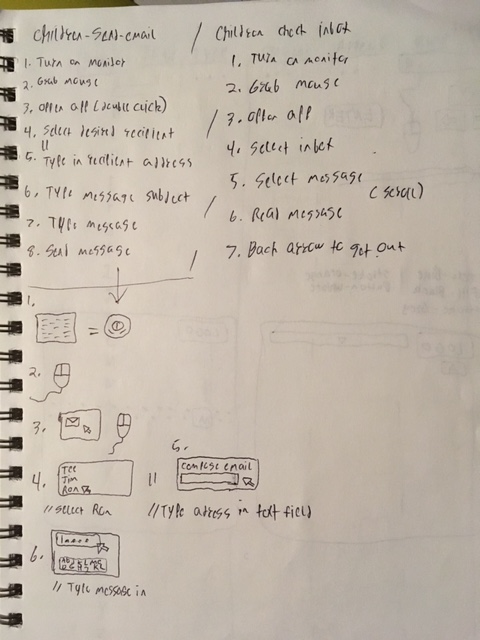 Children-Send-email
1. Turn on monitor
2. Grab mouse
3. open app (double click)
4. Select desired recipient
||
5. Type in recipient address
6. Type message subject
7. Type message
8. Send message
/ Children check inbox
1. Turn on monitor
2. Grab mouse
/ 3. open app
4. Select inbox
5. Select message
(scroll)
/ 6. Read message
/ 7. Back arrow to get out
1.
=
2.
3.
4. Tee
Jim
Ron
// select Ron
||
5.
compose email
// Type adress in text field
6.
// Type message in